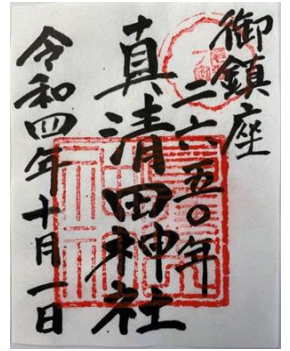 御鎮座
二六五〇年
真清田神社
令和四年十月一日